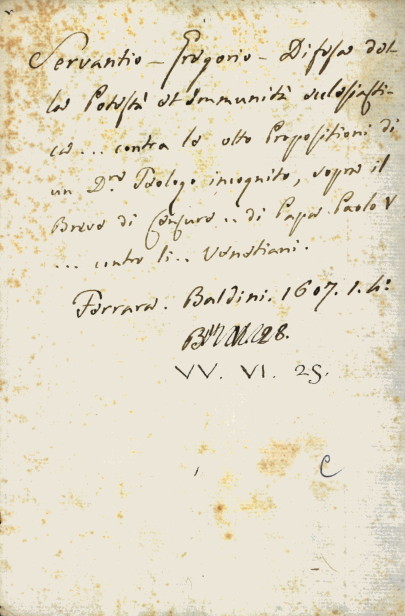 Servantio - Gregorio - Difesa del-
la Potestà et Immunità ecclesiasti-
ca ... contra le otto Propositioni di
un D.re Teologo incognito, sopra il
Breve di Censure .. di Papa Paolo V
... contro li .. Venetiani.
Ferrara. Baldini. 1607. 1. 4:
VV. VI. 28.
C